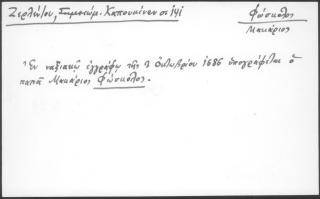 Ζερλέντου, Σημειώμ. Καπουκίνων σ. 141
Φώσκολος
Μακάριος
Ἐν ναξιακῷ ἐγγράφῳ τῆς 3 Ὀκτωβρίου 1686 ὑπογράφεται ὁ
παπᾶ Μακάριος Φώσκολος.